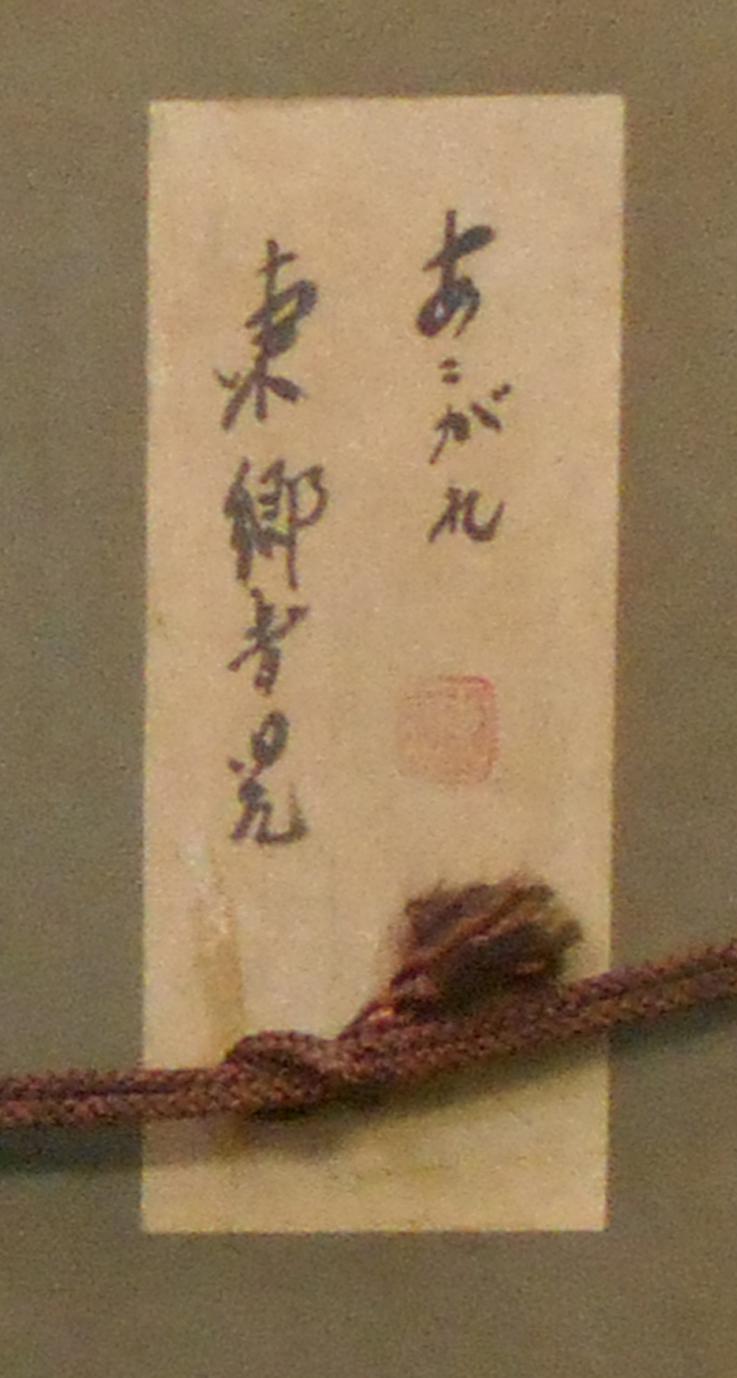 あこがれ
東郷青児